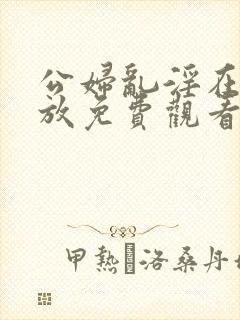 公婦亂淫在
放免費觀看
甲熱 洛桑丹
HANDSON